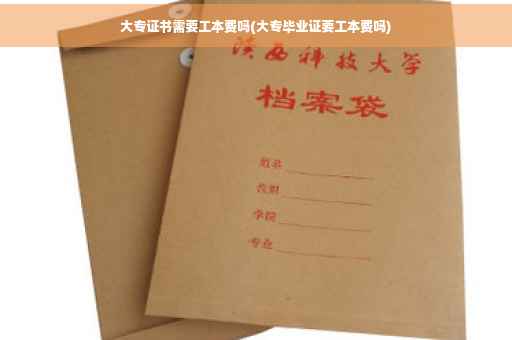 大专证书需要工本费吗(大专毕业证要工本费吗)
陕西科技大学
档案袋
姓名
学院
专业